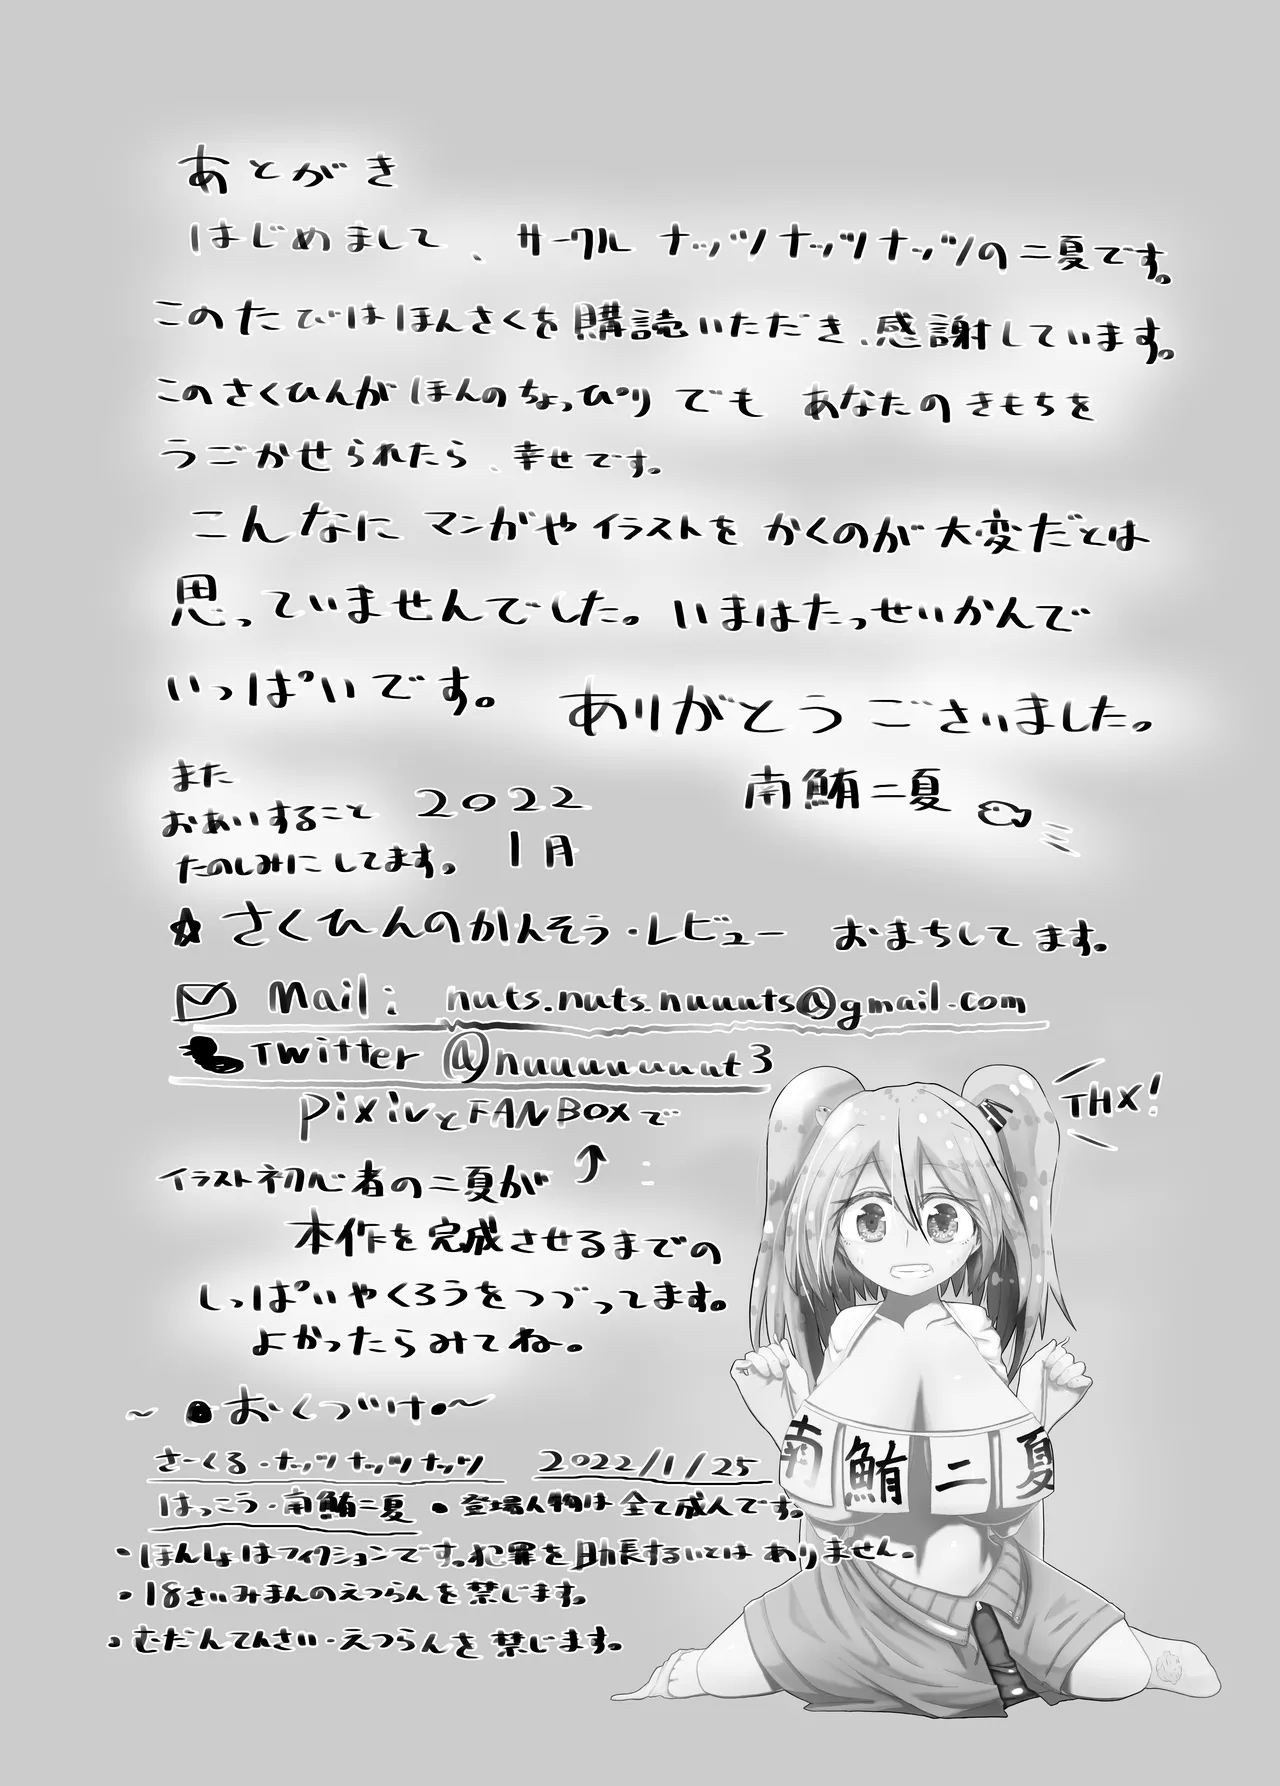 あとがき
はじめまして、サークル ナッツナッツナッツの二夏です。
このたびはほんさくを購読いただき、感謝しています。
このさくひんがほんのちょっぴりでも あなたのきもちを
うごかせられたら、幸せです。
こんなに マンガやイラストを かくのが大変だとは
思っていませんでした。いまはたっせいかんで
いっぱいです。 ありがとうございました。
南鮪二夏
また
おあいすること
たのしみにしてます。
2022
1月
☆さくひんのかんそう・レビュー おまちしてます。
Mail: nuts.nuts.nuuuts@gmail.com
Twitter @nuuuuuuut3
pixivとFANBOXで
↑
イラスト初心者の二夏が
本作を完成させるまでの
しっぱいやくろうをつづってます。
よかったらみてね。
THX!
南鮪二夏
～●おくづけ●～
さーくる・ナッツナッツナッツ 2022/1/25
はっこう・南鮪二夏 ●登場人物は全て成人です。
・ほんしょはフィクションです。犯罪を助長するいとはありません。
・18さいみまんのえつらんを禁じます。
・むだんてんさい・えつらんを禁じます。